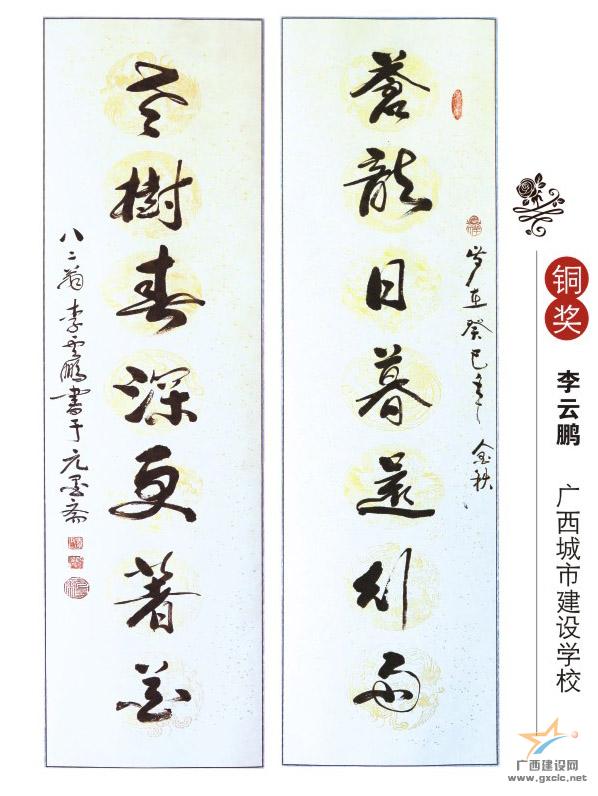 蒼龍日暮還行雨
歲在癸巳年金秋
老樹春深更著花
八二翁李雲鵬書于元墨斋
铜奖
李云鹏
广西城市建设学校
广西建设网
www.gxcic.net